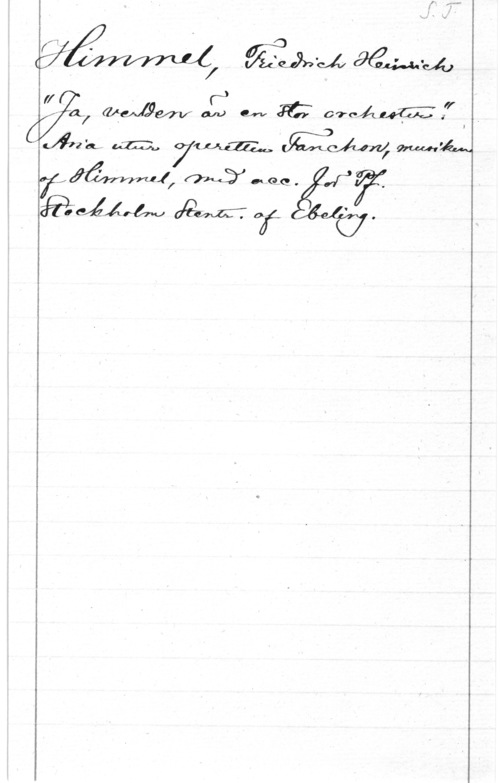 S. J.
Himmel, Friedrich Heinrich
"Ja, verlden är en stor orchester."
Aria utur operetten Fanchon, musiken
af Himmel, med acc. för Pf.
Stockholm Stentr. af Ebeling.